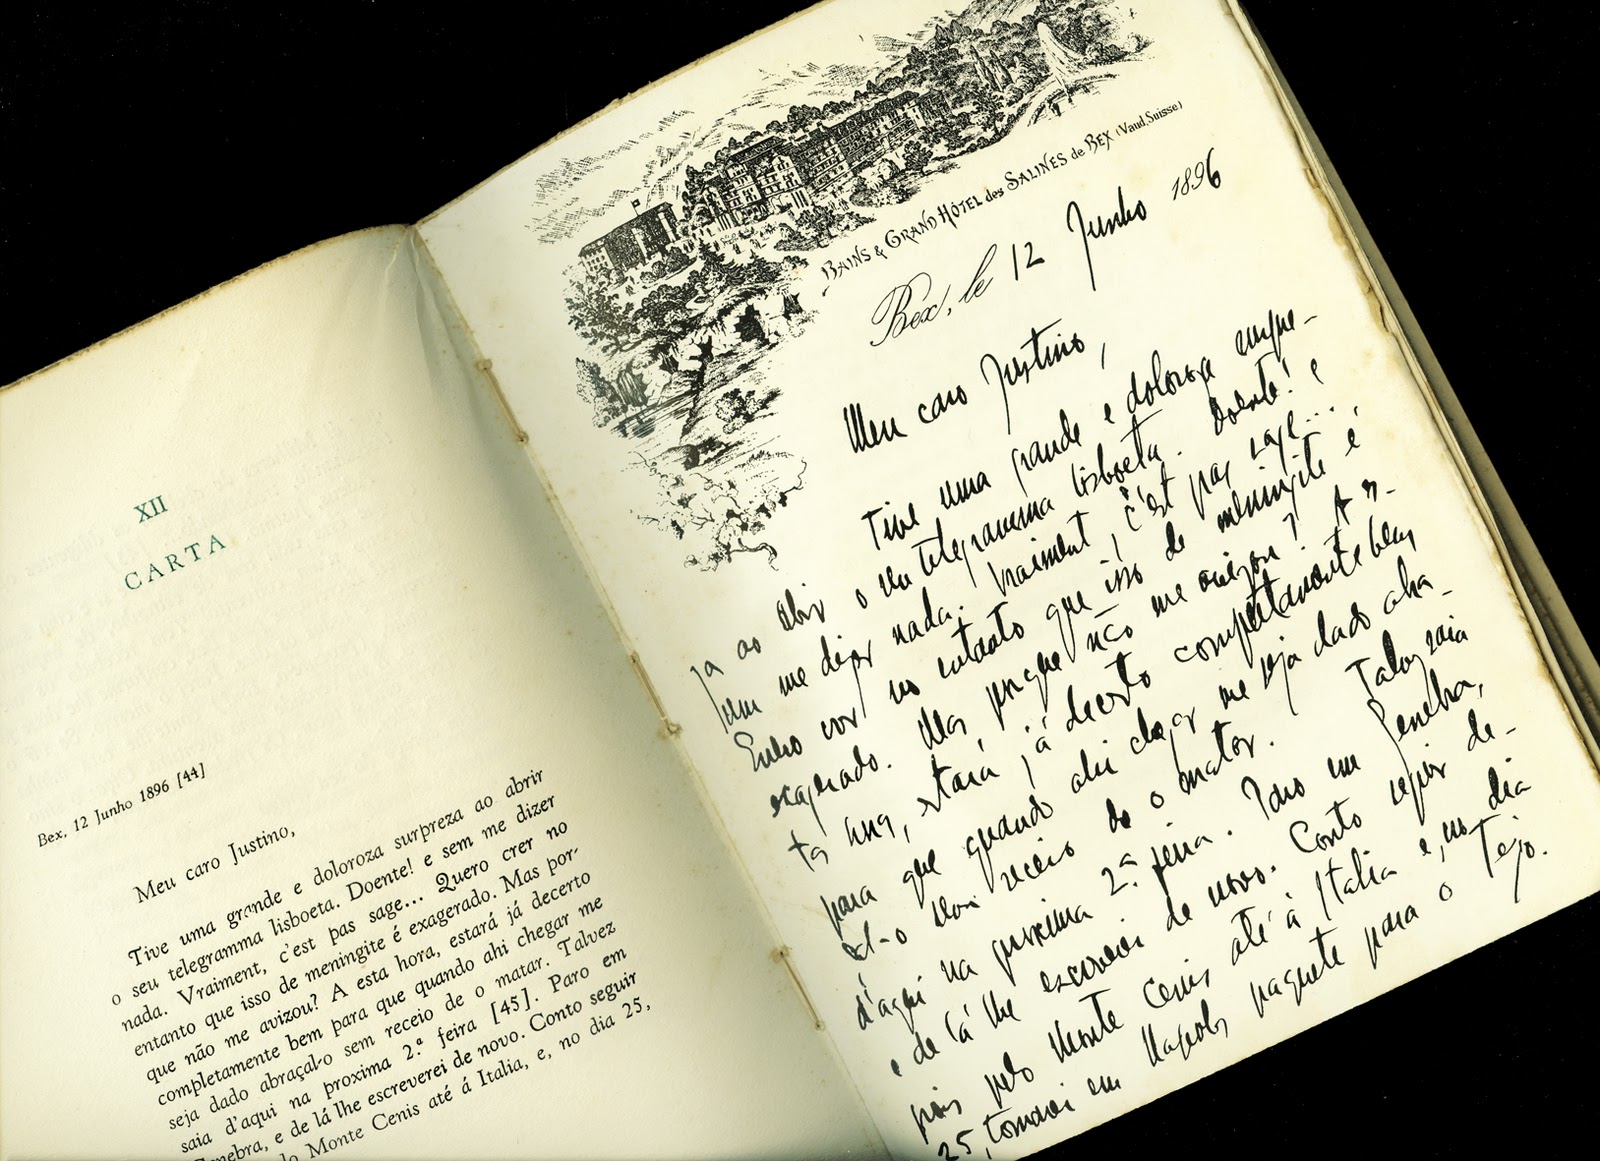 XII
CARTA
Bex, 12 Junho 1896 [44]
Meu caro Justino,
Tive uma grande e doloroza surpreza ao abrir
o seu telegramma lisboeta. Doente! e sem me dizer
nada. Vraiment, c'est pas sage... Quero crer no
entanto que isso de meningite é exagerado. Mas por-
que não me avizou? A esta hora, estará já decerto
completamente bem para que quando ahi chegar me
seja dado abraçal-o sem receio de o matar. Talvez
saia d'aqui na proxima 2.ª feira [45]. Paro em
Genebra, e de lá lhe escreverei de novo. Conto seguir
Monte Cenis até á Italia, e, no dia 25,
BAINS & GRAND HÔTEL des SALINES de BEX (Vaud, Suisse)
Bex, le 12 Junho 1896
Meu caro Justino,
Tive uma grande e doloroza surpre-
za ao abrir o seu telegramma lisboeta. Doente! e
sem me dizer nada. Vraiment, c'est pas sage...
Quero crer no entanto que isso de meningite é
exagerado. Mas porque não me avizou? A es-
ta hora, estará já decerto completamente bem
para que quando ahi chegar me seja dado abra-
çal-o sem receio de o matar. Talvez saia
d'aqui na proxima 2.ª feira. Paro em Genebra,
e de lá lhe escreverei de novo. Conto seguir de-
pois pelo Monte Cenis até á Italia e, no dia
25, tomarei em Napoles paquete para o Tejo.